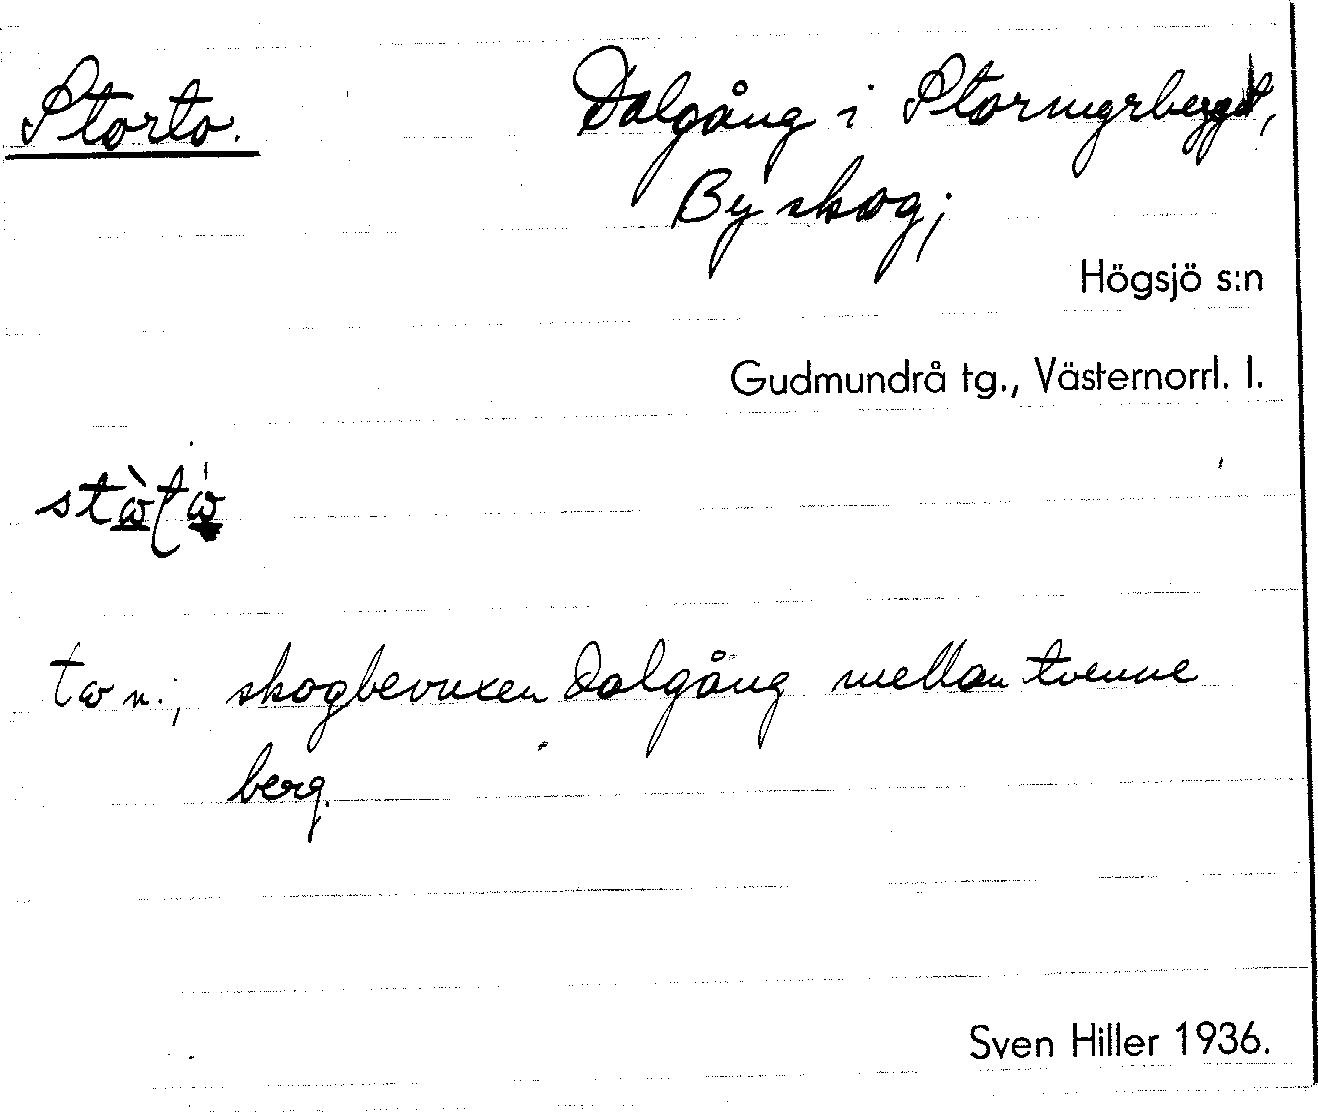 Storto. Dalgång i Stormyrberget,
By skog;
Högsjö s:n
Gudmundrå tg., Västernorrl. l.
to n.; skogbevuxen dalgång mellan tvenne
berg.
Sven Hiller 1936.